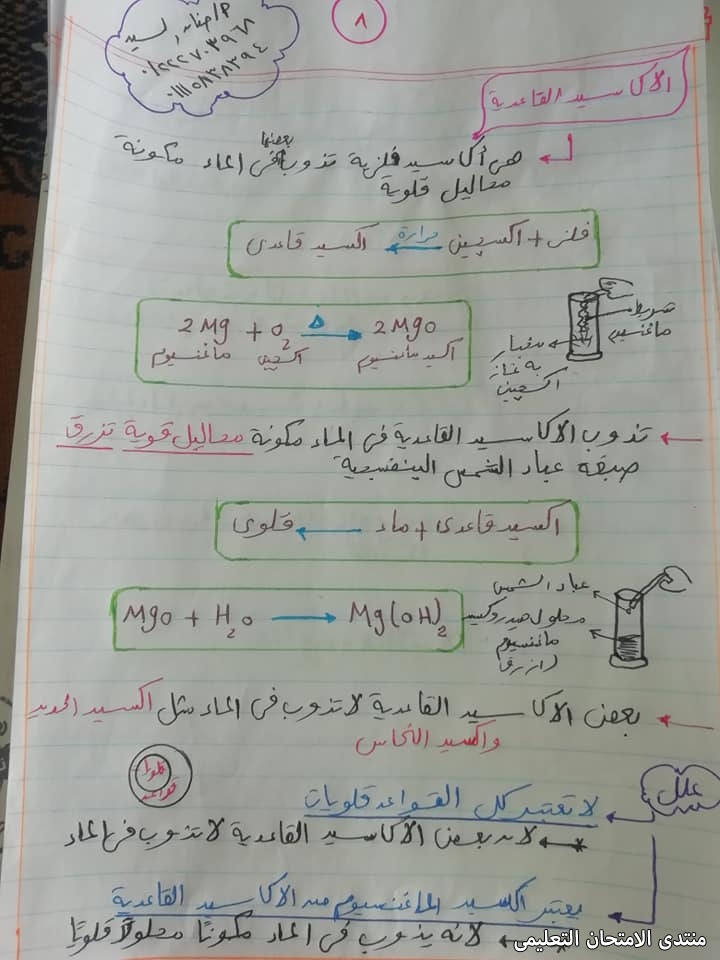 ٨
الأكاسيد القاعدية
هى أكاسيد فلزية تذوب بعضها فى الماء مكونة
محاليل قلوية
فلز + اكسچين حرارة اكسيد قاعدى
2Mg + O2 Δ 2MgO
ماغنسيوم اكسچين اكسيد ماغنسيوم
شريط
ماغنسيوم
مخبار
به غاز
اكسچين
تذوب الاكاسيد القاعدية فى الماء مكونة محاليل قوية تزرق
صبغه عباد الشمس البنفسجية
اكسيد قاعدى + ماء قلوى
MgO + H2O Mg(OH)2
عباد الشمس
محلول هيدروكسيد
ماغنسيوم
(ازرق)
بعض الاكاسيد القاعدية لا تذوب فى الماء مثل اكسيد الحديد
واكسيد النحاس
قواعد
علل
لا تعتبر كل القواعد قلويات
لان بعض الأكاسيد القاعدية لا تذوب فى الماء
يعتبر اكسيد الماغنسيوم من الاكاسيد القاعدية
لانه يذوب فى الماء مكونًا محلولًا قلويًا
منتدى الامتحان التعليمى